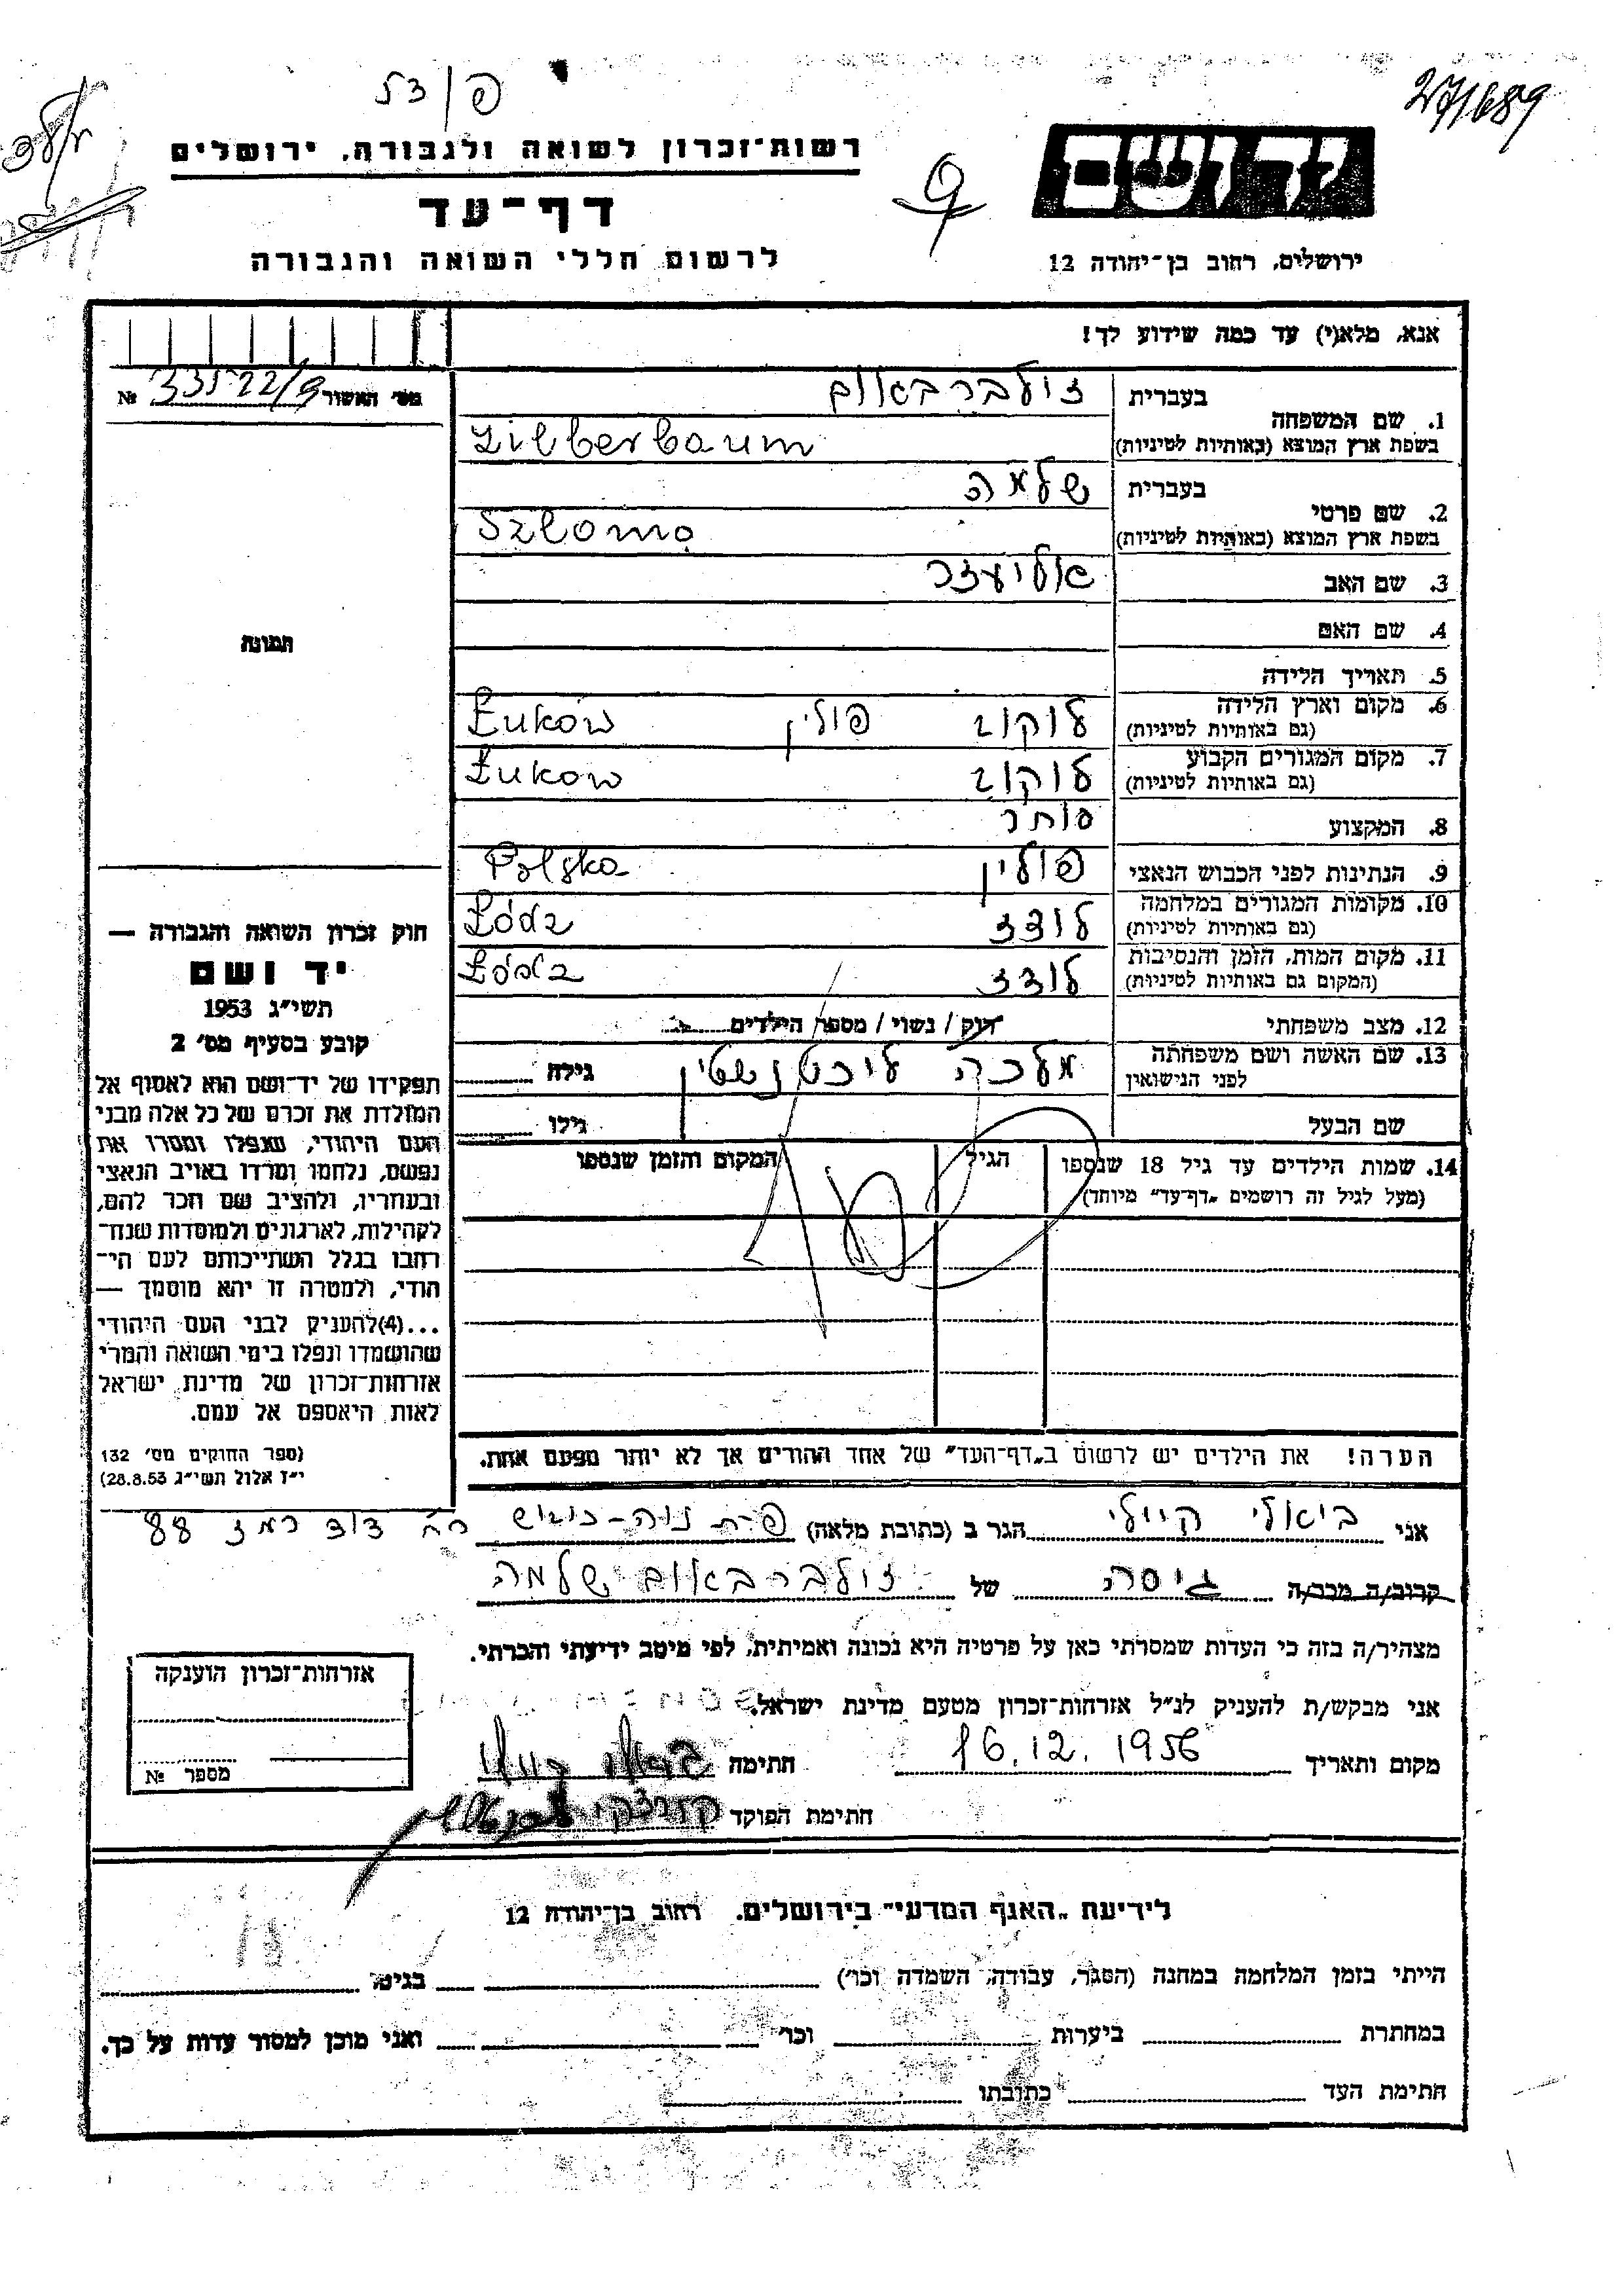 פ/צל
27/689
רשות־זכרון לשואה ולגבורה, ירושלים
דף־עד
לרשום חללי השואה והגבורה
ידושם
ירושלים, רחוב בן־יהודה 12
אנא, מלא(י) עד כמה שידוע לך!
מס' האשור 33522/9 №
1. שם המשפחה בעברית זילברבאום
בשפת ארץ המוצא (באותיות לטיניות) Zilberbaum
2. שם פרטי בעברית שלמה
בשפת ארץ המוצא (באותיות לטיניות) Szlomo
3. שם האב אליעזר
4. שם האם
5. תאריך הלידה
6. מקום וארץ הלידה
(גם באותיות לטיניות) לוקוב פולין Łuków
7. מקום המגורים הקבוע
(גם באותיות לטיניות) לוקוב Łukow
8. המקצוע סוחר
9. הנתינות לפני הכבוש הנאצי פולין Polska
10. מקומות המגורים במלחמה
(גם באותיות לטיניות) לודז Łódz
11. מקום המות, הזמן והנסיבות
(המקום גם באותיות לטיניות) לודז Łódz
12. מצב משפחתי רווק / נשוי / מספר הילדים
13. שם האשה ושם משפחתה
לפני הנישואין מלכה ליכטנשטין גילה
שם הבעל גילו
14. שמות הילדים עד גיל 18 שנספו הגיל המקום והזמן שנספו
(מעל לגיל זה רושמים „דף־עד" מיוחד)
הערה! את הילדים יש לרשום ב„דף־העד" של אחד ההורים אך לא יותר מפעם אחת.
תמונה
חוק זכרון השואה והגבורה —
יד ושם
תשי"ג 1953
קובע בסעיף מס' 2
תפקידו של יד־ושם הוא לאסוף אל
המולדת את זכרם של כל אלה מבני
העם היהודי, שנפלו ומסרו את
נפשם, נלחמו ומרדו באויב הנאצי
ובעוזריו, ולהציב שם וזכר להם,
לקהילות, לארגונים ולמוסדות שנח־
רבו בגלל השתייכותם לעם הי־
הודי, ולמטרה זו יהא מוסמך —
...(4)להעניק לבני העם היהודי
שהושמדו ונפלו בימי השואה והמרי
אזרחות־זכרון של מדינת ישראל
לאות היאספם אל עמם.
(ספר החוקים מס' 132
י"ז אלול תשי"ג 28.8.53)
אני ביאלי קיילי הגר ב (כתובת מלאה) פ״ת נוה־ רח׳ דוד רמז 88
קרוב/ה מכר/ה גיסה של זילברבאום שלמה
מצהיר/ה בזה כי העדות שמסרתי כאן על פרטיה היא נכונה ואמיתית, לפי מיטב ידיעתי והכרתי.
אני מבקש/ת להעניק לנ"ל אזרחות־זכרון מטעם מדינת ישראל.
מקום ותאריך 16.12.1956 חתימה
חתימת הפוקד
אזרחות־זכרון הוענקה
מספר №
לידיעת „האגף המדעי" בירושלים. רחוב בן־יהודה 12
הייתי בזמן המלחמה במחנה (הסגר, עבודה, השמדה וכו') בגיטו
במחתרת ביערות וכו' ואני מוכן למסור עדות על כך.
חתימת העד כתובתו